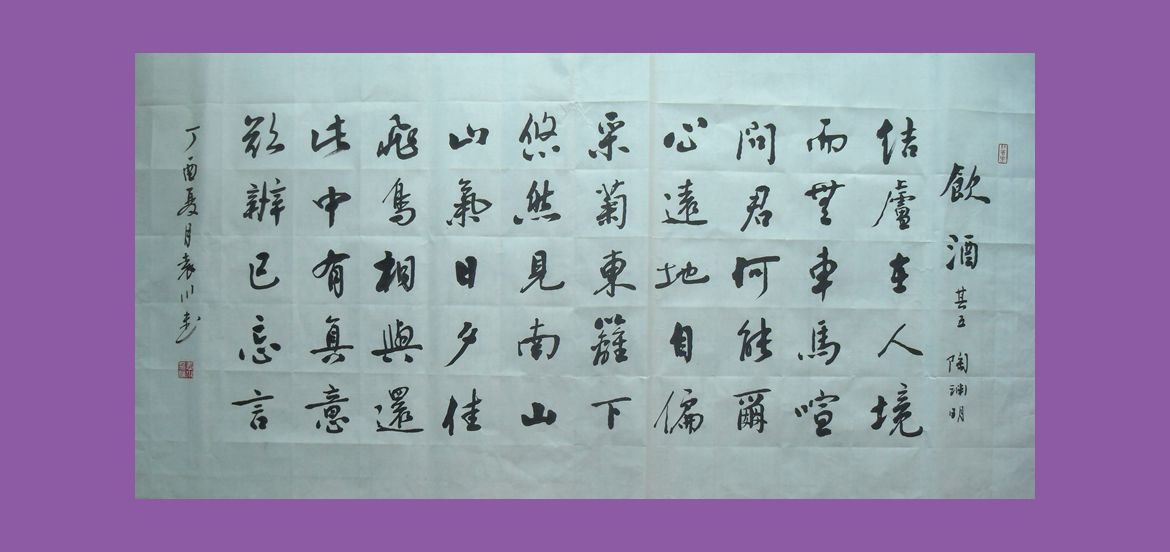 飲酒 其五 陶渊明
结盧在人境
而無車馬喧
問君何能爾
心遠地自偏
采菊東籬下
悠然見南山
山氣日夕佳
飛鳥相與還
此中有真意
欲辨已忘言
丁酉夏月袁川书